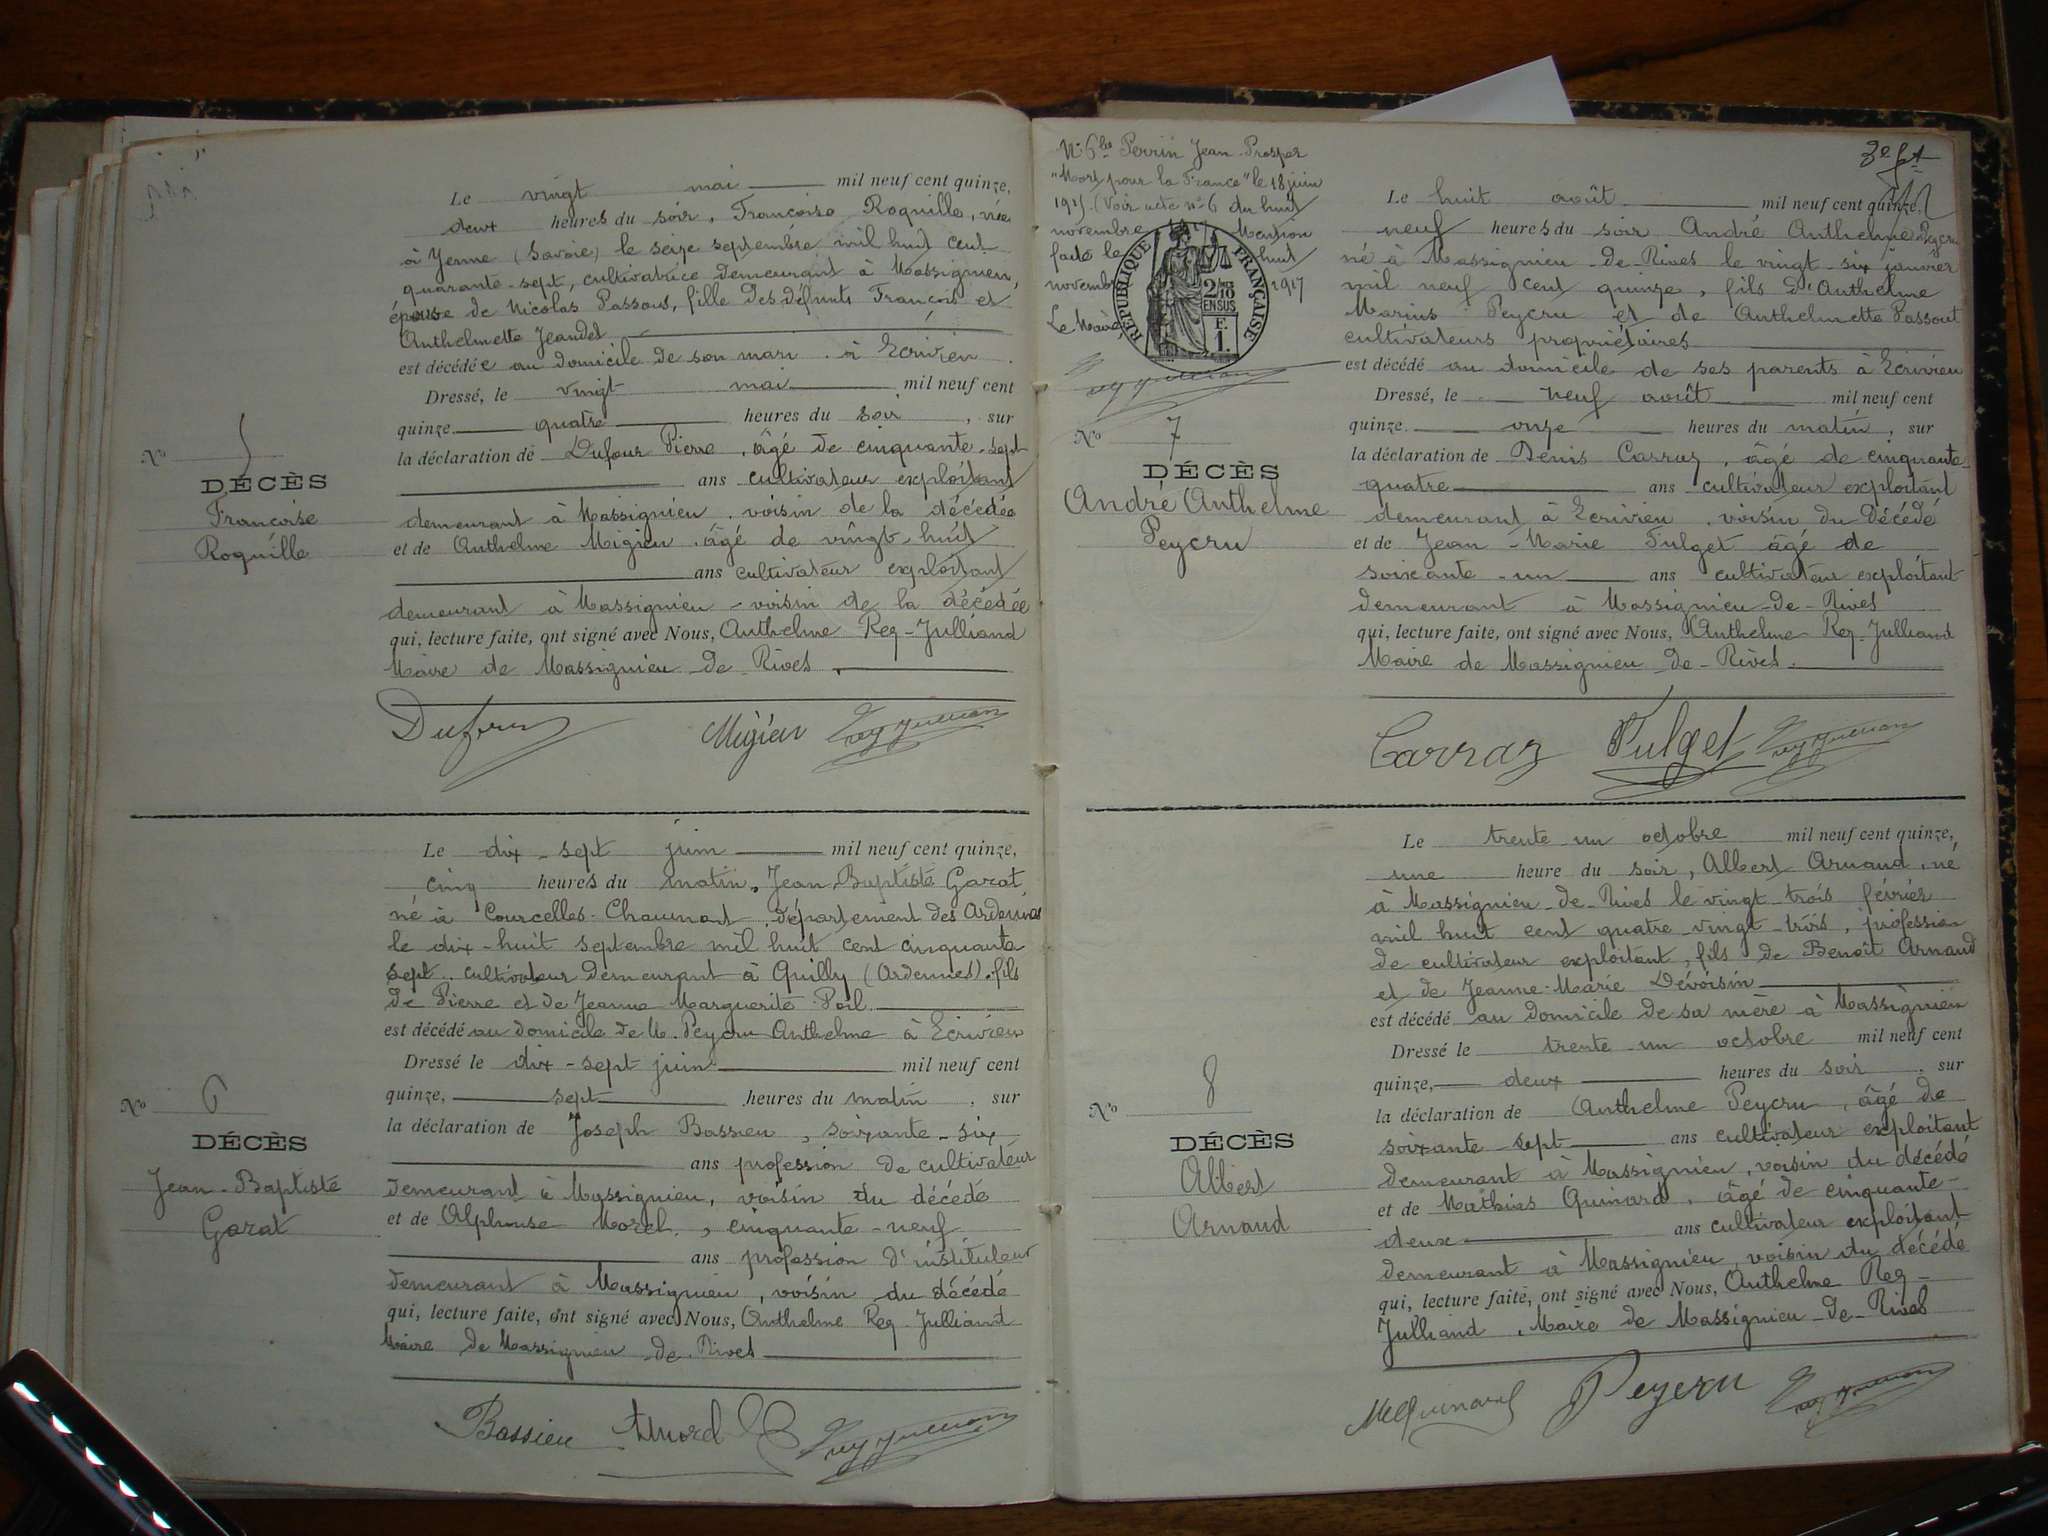 Le vingt mai mil neuf cent quinze,
deux heures du soir, Françoise Roquille, née
à Yenne (Savoie) le seize septembre mil huit cent
quarante-sept, cultivatrice demeurant à Massignieu,
épouse de Nicolas Passous, fille des défunts François et
Anthelmette Jeandet
est décédée au domicile de son mari à Ecrivieu
Dressé, le vingt mai mil neuf cent
quinze quatre heures du soir, sur
la déclaration de Dufour Pierre, âgé de cinquante-sept
ans cultivateur exploitant
demeurant à Massignieu, voisin de la décédée
et de Anthelme Migieu, âgé de vingt-huit
ans cultivateur exploitant
demeurant à Massignieu - voisin de la décédée
qui, lecture faite, ont signé avec Nous, Anthelme Rey-Julliand
Maire de Massignieu de Rives.
Dufour Migieu Rey Julliand
No 5
DÉCÈS
Françoise
Roquille
Le dix-sept juin mil neuf cent quinze,
cinq heures du matin, Jean-Baptiste Garat
né à Courcelles-Chaumont, département des Ardennes
le dix-huit septembre mil huit cent cinquante
sept, cultivateur demeurant à Quilly (Ardennes), fils
de Pierre et de Jeanne Marguerite Poil
est décédé au domicile de M. Peycru Anthelme à Ecrivieu
Dressé le dix-sept juin mil neuf cent
quinze, sept heures du matin, sur
la déclaration de Joseph Bassieu, soixante-six
ans profession de cultivateur
demeurant à Massignieu, voisin du décédé
et de Alphonse Morel, cinquante-neuf
ans profession d'instituteur
demeurant à Massignieu, voisin du décédé
qui, lecture faite, ont signé avec Nous, Anthelme Rey-Julliand
Maire de Massignieu de Rives
Bassieu AMorel Rey Julliand
No 6
DÉCÈS
Jean-Baptiste
Garat
N° 6 bis Perrin Jean-Prosper
"Mort pour la France" le 18 juin
1915. (Voir acte n° 6 du huit
novembre Mention
faite le huit
novembre 1917
Le Maire
Rey Julliand
RÉPUBLIQUE FRANÇAISE
2 10
EN SUS
F.
1.
Le huit août mil neuf cent quinze.
neuf heures du soir André Anthelme Peycru
né à Massignieu-de-Rives le vingt-six janvier
mil neuf cent quinze, fils d'Anthelme
Marius Peycru et de Anthelmette Passout
cultivateurs propriétaires
est décédé au domicile de ses parents à Ecrivieu
Dressé, le neuf août mil neuf cent
quinze onze heures du matin, sur
la déclaration de Denis Carraz, âgé de cinquante-
quatre ans cultivateur exploitant
demeurant à Ecrivieu, voisin du décédé
et de Jean-Marie Fulget âgé de
soixante-un ans cultivateur exploitant
demeurant à Massignieu-de-Rives
qui, lecture faite, ont signé avec Nous, Anthelme Rey-Julliand
Maire de Massignieu-de-Rives.
Carraz Fulget Rey Julliand
No 7
DÉCÈS
André Anthelme
Peycru
Le trente un octobre mil neuf cent quinze,
une heure du soir, Albert Arnaud, né
à Massignieu-de-Rives le vingt-trois février
mil huit cent quatre-vingt-trois, profession
de cultivateur exploitant, fils de Benoît Arnaud
et de Jeanne-Marie Dévoisin
est décédé au domicile de sa mère à Massignieu
Dressé le trente un octobre mil neuf cent
quinze, deux heures du soir, sur
la déclaration de Anthelme Peycru, âgé de
soixante sept ans cultivateur exploitant
demeurant à Massignieu, voisin du décédé
et de Mathias Quinard, âgé de cinquante-
deux ans cultivateur exploitant
demeurant à Massignieu, voisin du décédé
qui, lecture faite, ont signé avec Nous, Anthelme Rey-
Julliand, Maire de Massignieu-de-Rives
MQuinard Peycru Rey Julliand
No 8
DÉCÈS
Albert
Arnaud